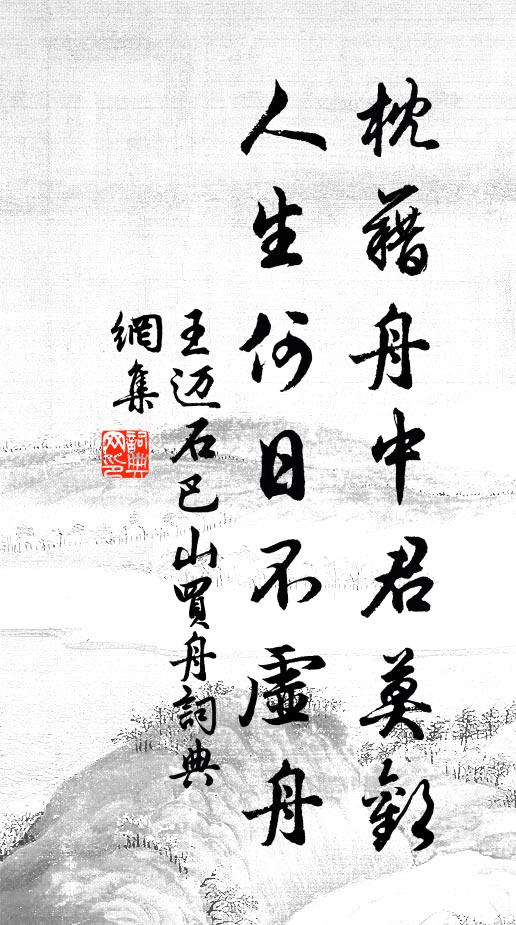 枕藉舟中君莫歎
人生何日不虛舟
王迈石巴山買舟詞典
網集
詞典
网印